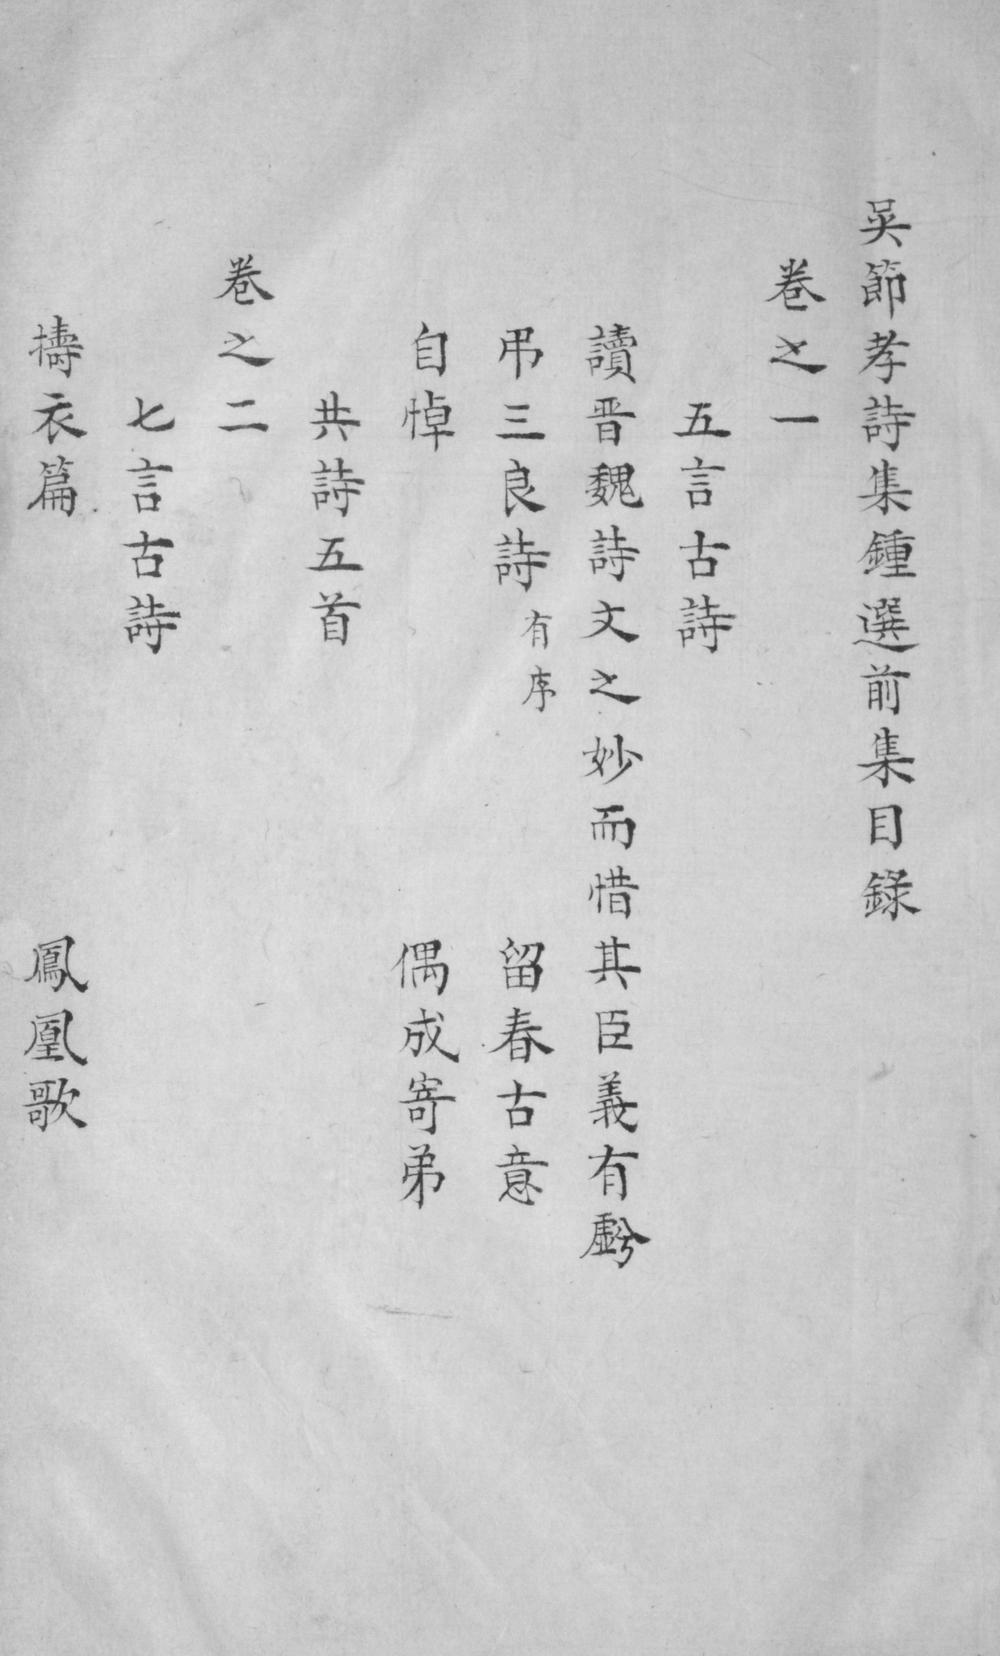 吳節孝詩集鍾選前集目錄
卷之一
五言古詩
讀晉魏詩文之妙而惜其臣義有虧
弔三良詩有序　留春古意
自悼　偶成寄弟
共詩五首
卷之二
七言古詩
擣衣篇　鳳凰歌